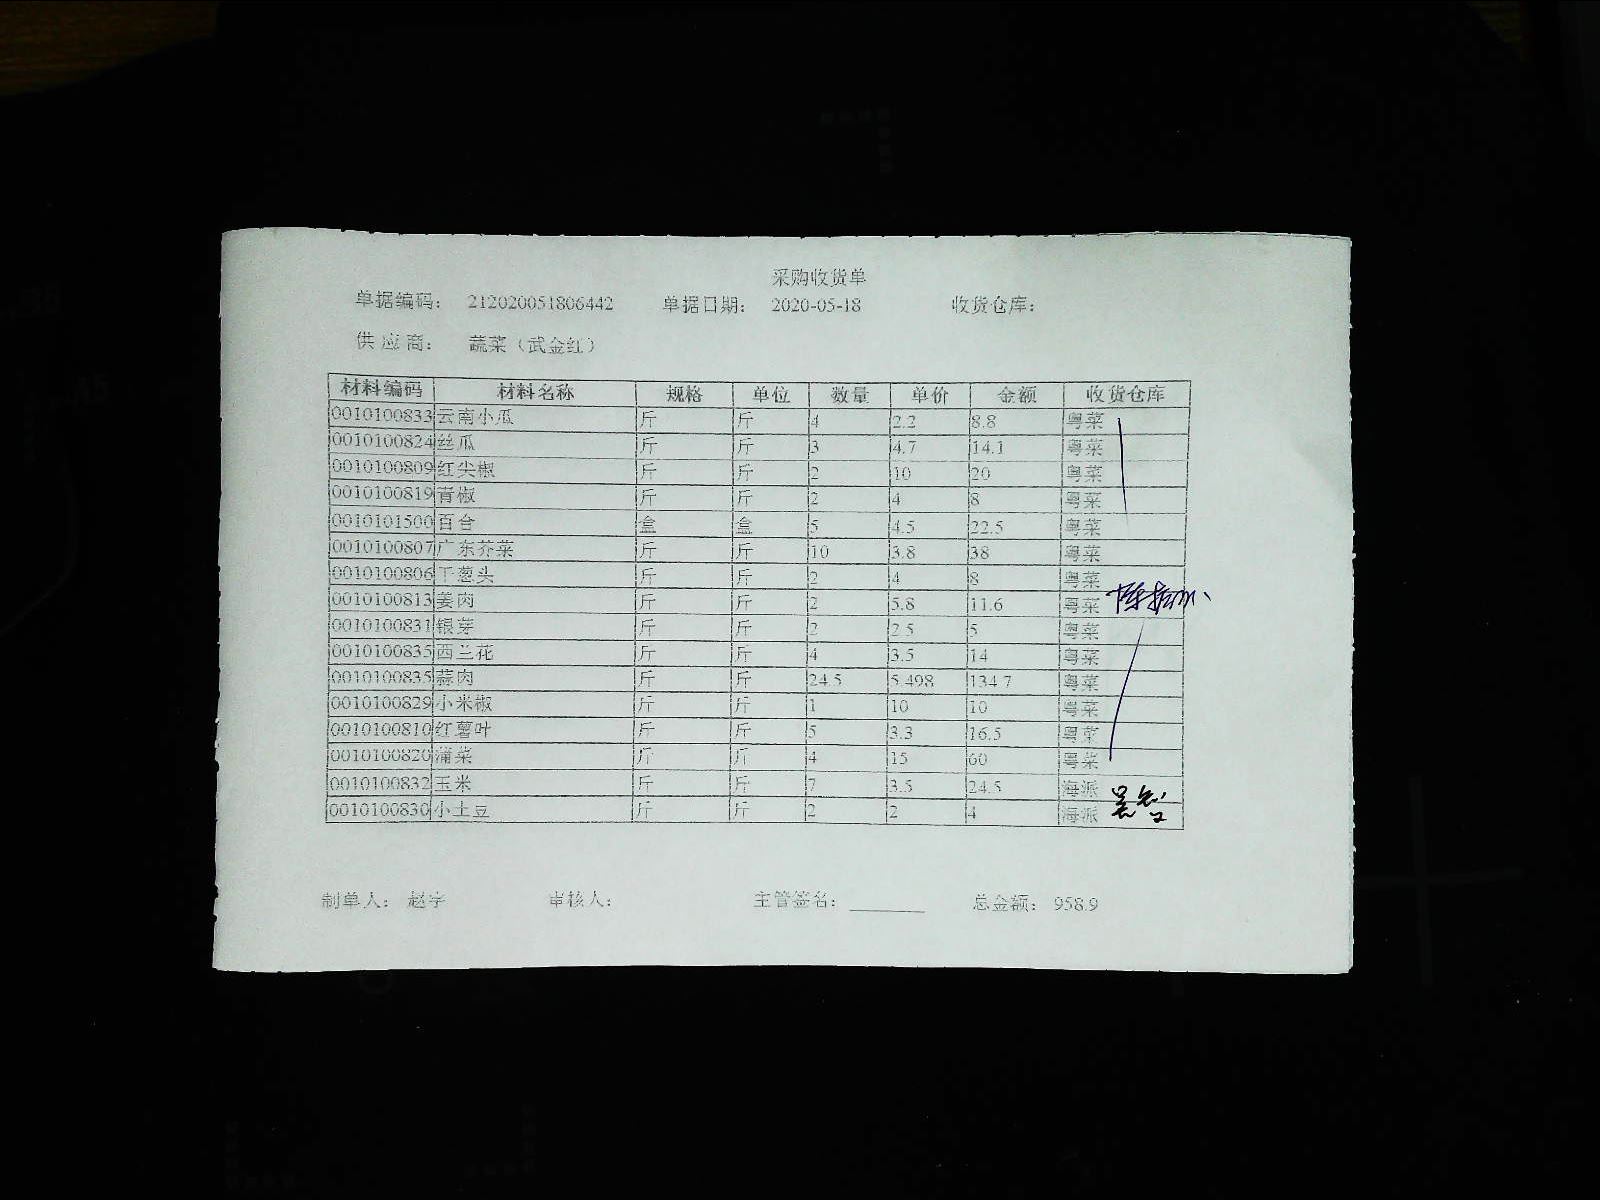 采购收货单
单据编码： 212020051806442 单据日期： 2020-05-18 收货仓库：
供应商： 蔬菜（武金红）
材料编码 材料名称 规格 单位 数量 单价 金额 收货仓库
0010100833 云南小瓜 斤 斤 4 2.2 8.8 粤菜
0010100824 丝瓜 斤 斤 3 4.7 14.1 粤菜
0010100809 红尖椒 斤 斤 2 10 20 粤菜
0010100819 青椒 斤 斤 2 4 8 粤菜
0010101500 百合 盒 盒 5 4.5 22.5 粤菜
0010100807 广东芥菜 斤 斤 10 3.8 38 粤菜
0010100806 干葱头 斤 斤 2 4 8 粤菜
0010100813 姜肉 斤 斤 2 5.8 11.6 粤菜
0010100831 银芽 斤 斤 2 2.5 5 粤菜
0010100835 西兰花 斤 斤 4 3.5 14 粤菜
0010100835 蒜肉 斤 斤 24.5 5.498 134.7 粤菜
0010100829 小米椒 斤 斤 1 10 10 粤菜
0010100810 红薯叶 斤 斤 5 3.3 16.5 粤菜
0010100820 蒲菜 斤 斤 4 15 60 粤菜
0010100832 玉米 斤 斤 7 3.5 24.5 海派
0010100830 小土豆 斤 斤 2 2 4 海派
制单人： 赵宇 审核人： 主管签名： 总金额： 958.9